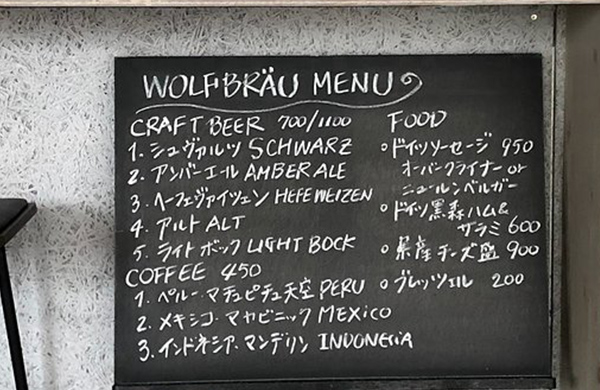 WOLFBRÄU MENU
CRAFT BEER 700/1100
1. シュヴァルツ SCHWARZ
2. アンバーエール AMBER ALE
3. ヘーフェヴァイツェン HEFEWEIZEN
4. アルト ALT
5. ライトボック LIGHT BOCK
COFFEE 450
1. ペルー・マチュピチュ天空 PERU
2. メキシコ・マヤビニック MEXICO
3. インドネシア・マンデリン INDONESIA
FOOD
○ドイツソーセージ 950
オーバークライナー or
ニュールンベルガー
○ドイツ黒森ハム&
サラミ 600
○県産チーズ盛 900
○ブレッツェル 200